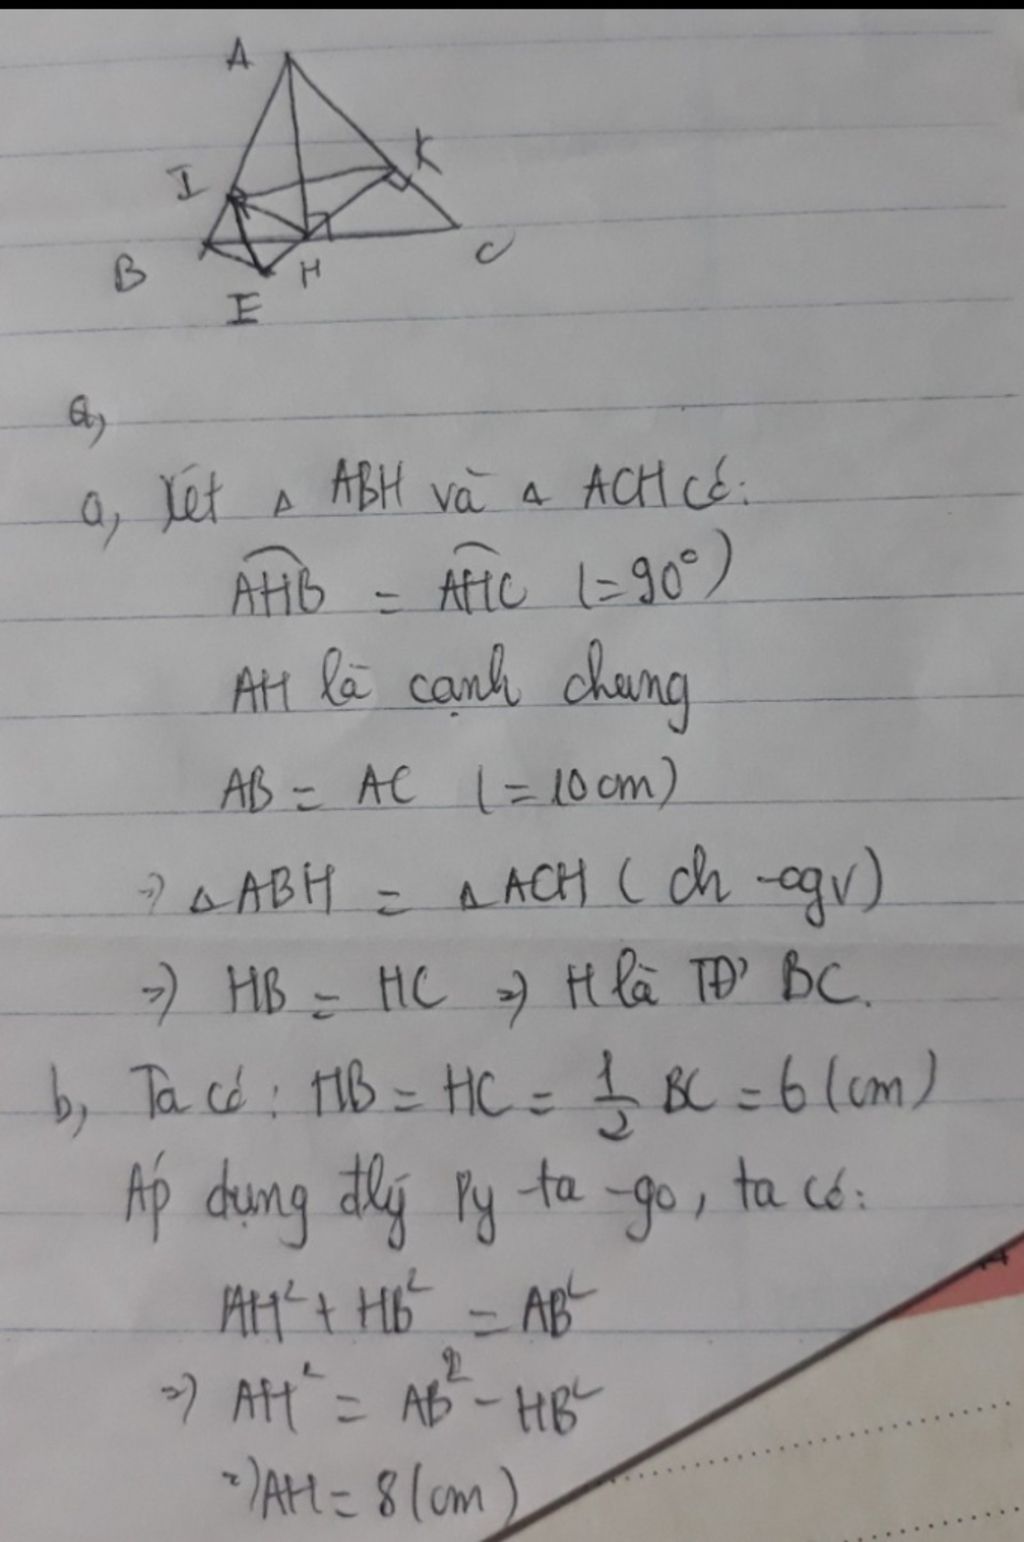 A
K
I
B
H
C
E
a,
a, Xét Δ ABH và Δ ACH có:
AHB = AHC (=90°)
AH là cạnh chung
AB = AC (=10cm)
=> Δ ABH = Δ ACH (ch-cgv)
=> HB = HC => H là TĐ' BC.
b, Ta có: HB = HC = 1/2 BC = 6(cm)
Áp dụng đlý Py-ta-go, ta có:
AH² + HB² = AB²
=> AH² = AB² - HB²
=> AH = 8(cm)